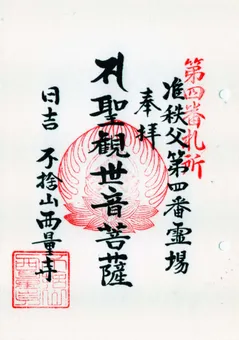 第四番札所
准秩父第四番霊場
奉拝
聖観世音菩薩
日吉 不捨山西量寺